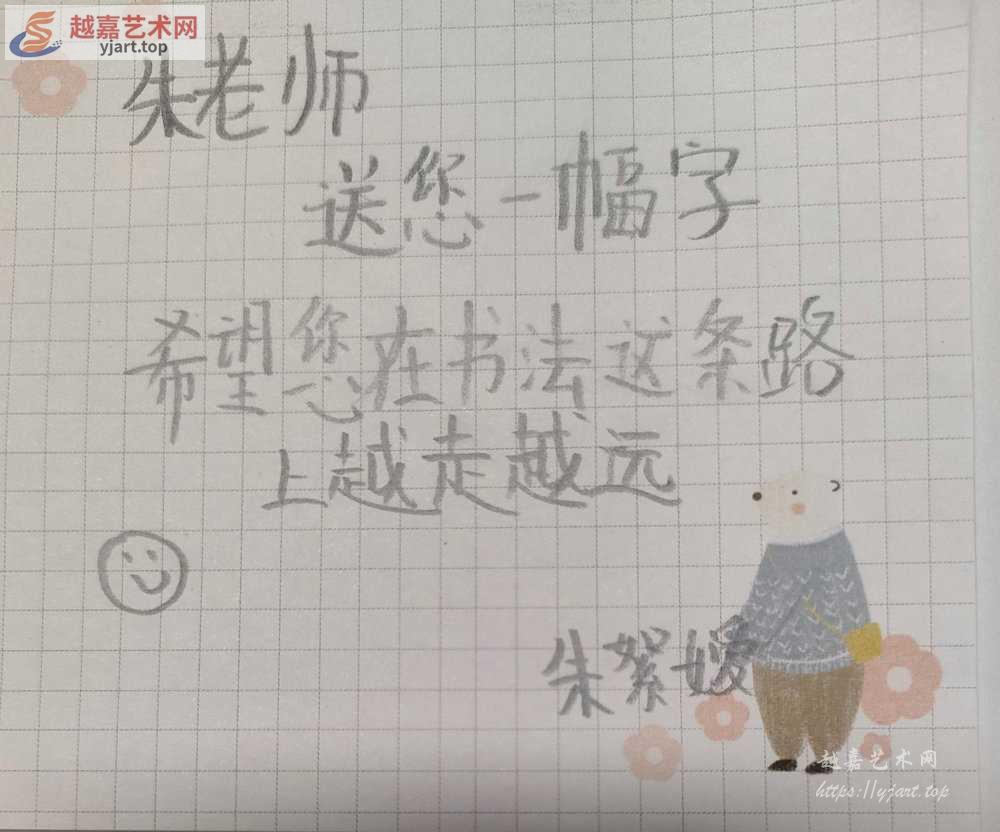 越嘉艺术网
yjart.top
朱老师
送您一幅字
希望您在书法这条路
上越走越远
朱絮嫒
越嘉艺术网
https://yjart.top